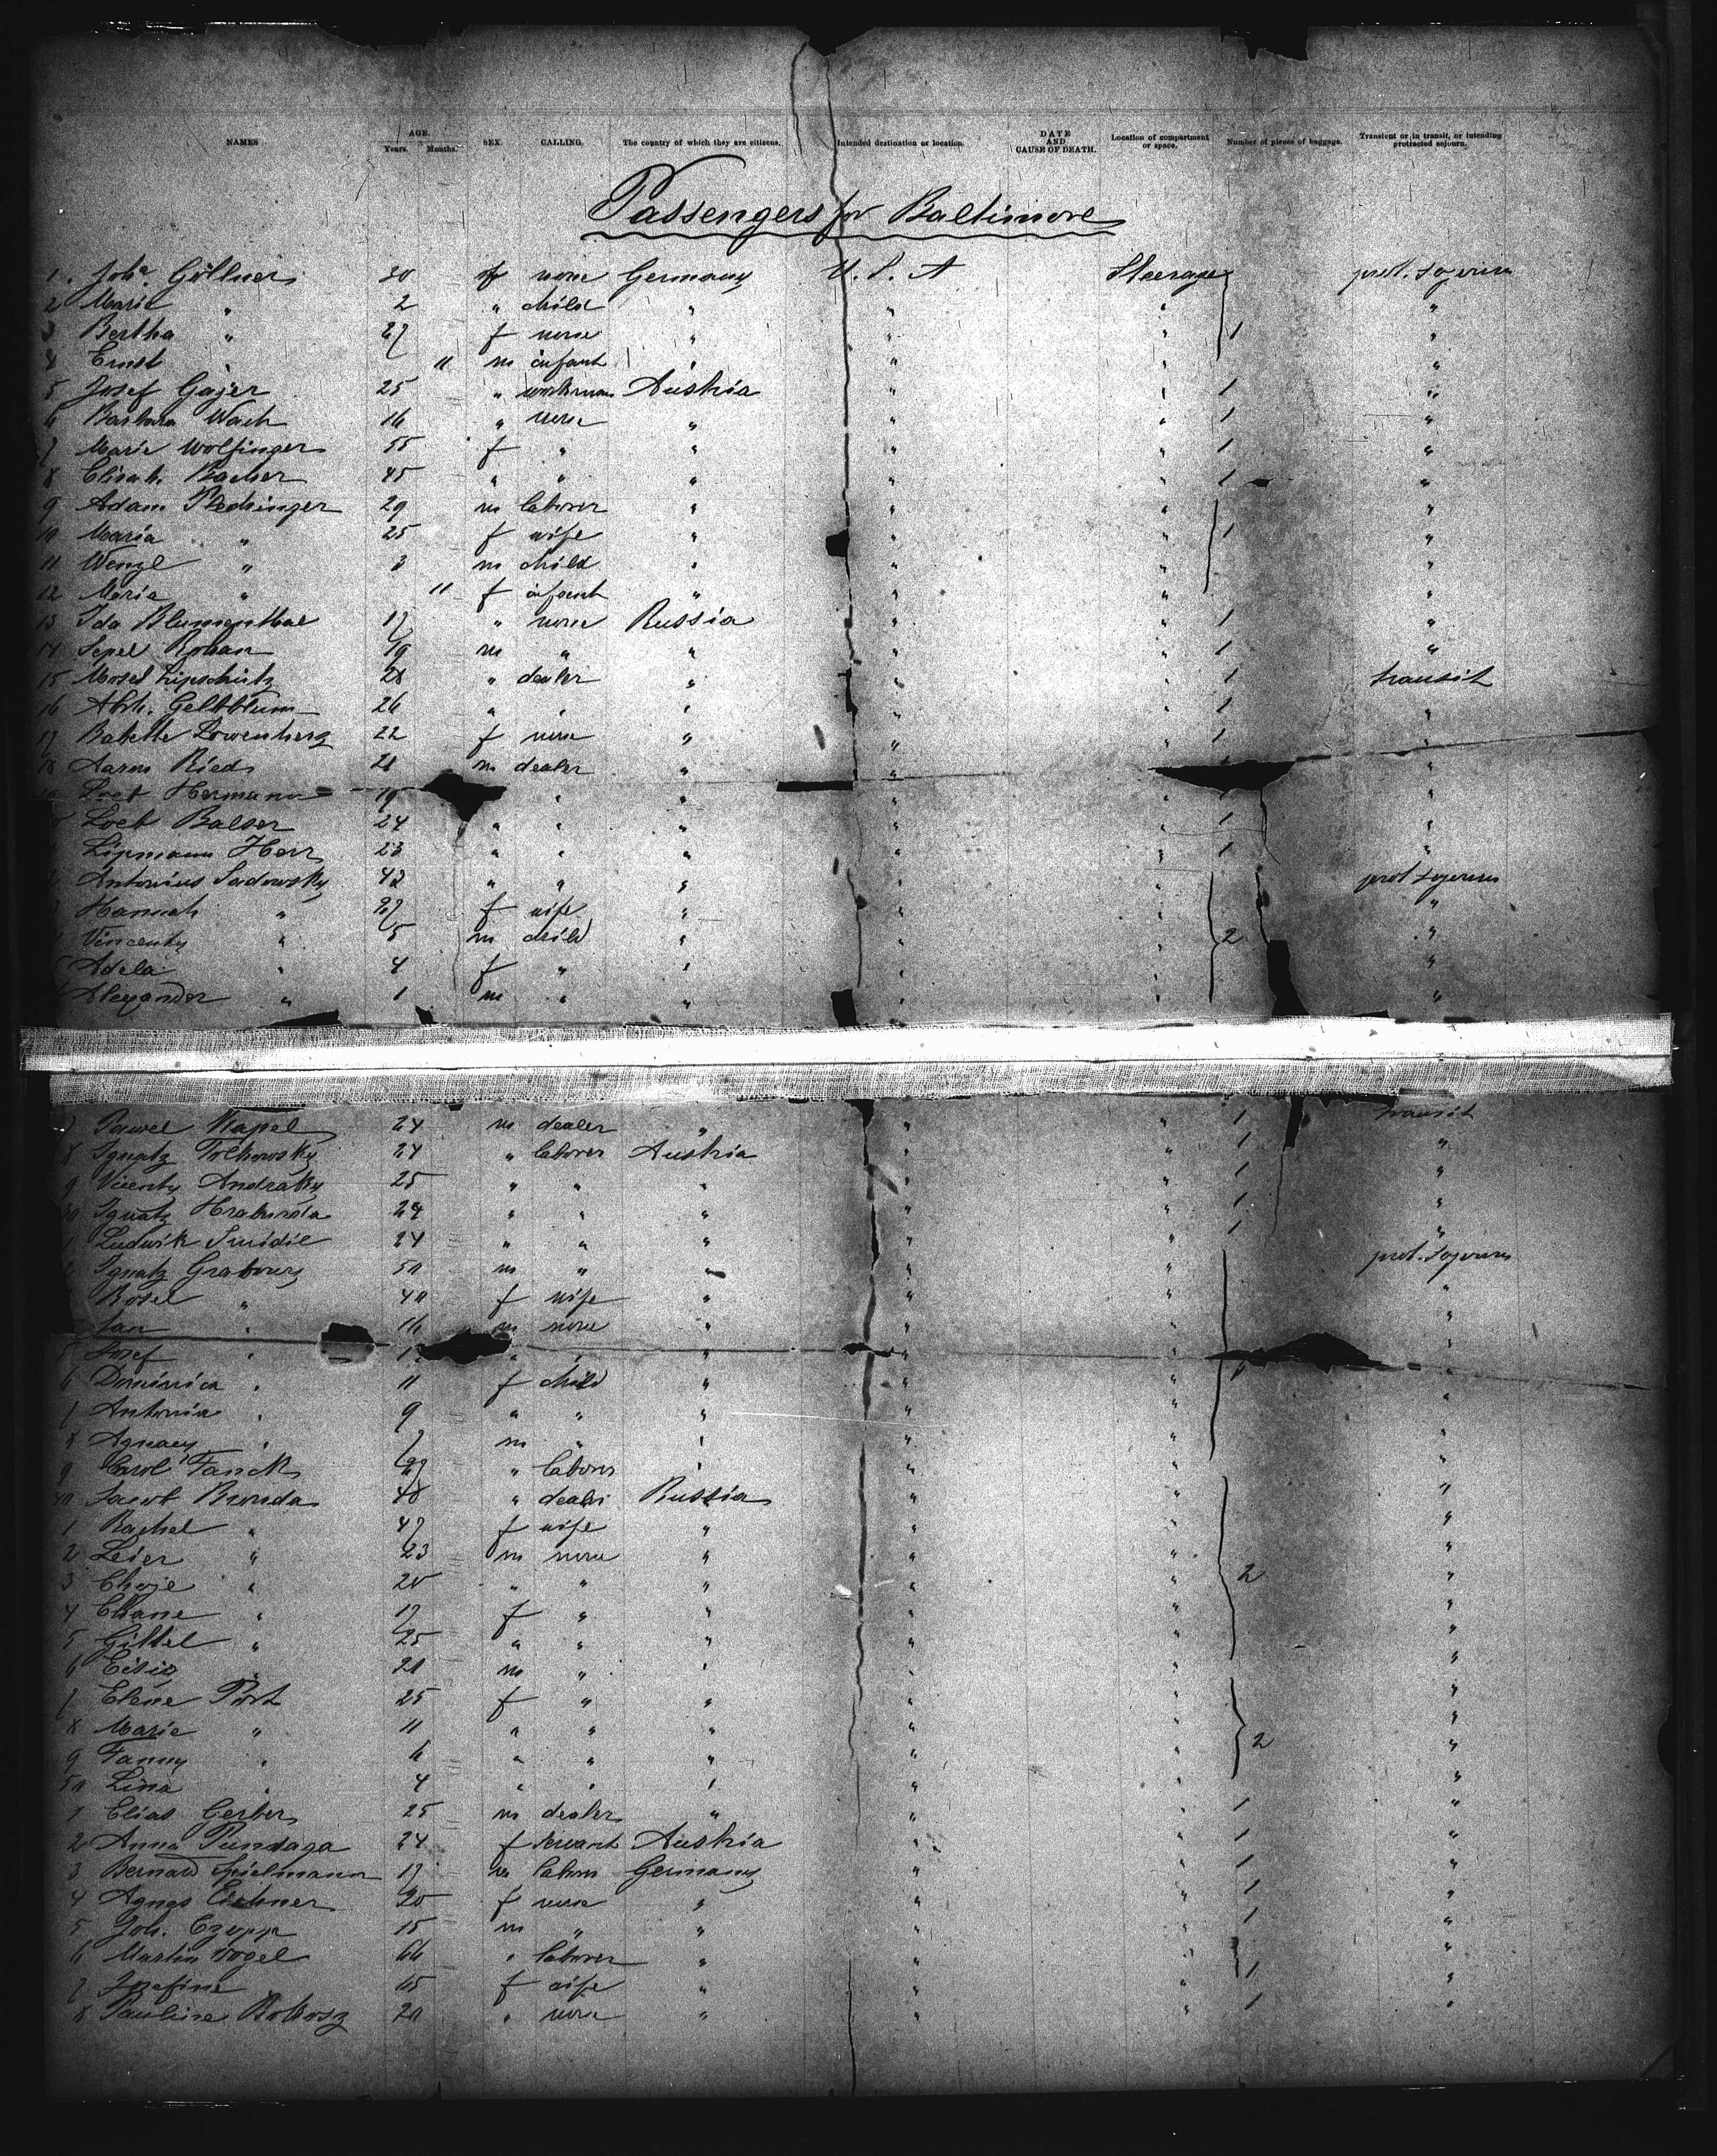 NAMES AGE. Years. Months. SEX. CALLING. The country of which they are citizens. Intended destination or location. DATE AND CAUSE OF DEATH. Location of compartment or space. Number of pieces of baggage. Transient or in transit, or intending protracted sojourn.
Passengers for Baltimore
1. Joha Göllner 30 none Germany U. S. A Steerage prot. sojourn
2 Marie " 2 " child " " " "
3 Bertha " 27 f none " " " 1 "
4 Ernst 11 m infant " " " "
5 Josef Gajer 25 " workman Austria " " 1 "
6 Barbara Wach 16 " none " " " 1 "
7 Marie Wolfinger 55 f " " " " 1 "
8 Elisab. Bacher 45 " " " " " 1 "
9 Adam Plechinger 29 m laborer " " " "
10 Maria " 25 f wife " " " 1 "
11 Wenzl " 3 m child " " " "
12 Maria " 11 f infant " " " "
13 Ida Blumenthal 17 " none Russia " " 1 "
14 Rohan 19 m " " " " 1 "
15 Moses Lipschütz 28 " dealer " " " 1 transit
16 Abh. Geltblum 26 " " " " " 1 "
17 Babette Löwenberg 22 f none " " " 1 "
18 Aaron Rieds 21 m dealer " " " "
Loeb Hermann 19 " " " " "
Loeb Balser 24 " " " " " 1 "
Lipmann Herz 23 " " " " " 1 "
2 Antonius Sadowsky 42 " " " " " prot sojourn
Hannah " 27 f wife " " " "
Vincenty " 5 m child " " " 2 "
Adela " 4 f " " " " "
Alexander " 1 m " " " " "
7 Pawel Kapel 24 m dealer " " " 1 transit
8 Ignatz Tolkowsky 24 " laborer Austria " " 1 "
9 Vicenty Andratzky 25 " " " " " 1 "
30 Ignatz Hraburda 24 " " " " " 1 "
1 Ludwik Smidil 24 " " " " " 1 "
Ignatz Grabowy 50 m " " " " prot. sojourn
Rosel " 40 f wife " " " "
Jan " 16 m none " " " "
5 Josef " " " " " " "
6 Dominica " 11 f child " " " "
7 Antonia " 9 " " " " " "
8 Agnacy " 7 m " " " " "
9 Carol Fanck " laborer " " " "
40 Jacob Bronda 48 " dealer Russia " " "
1 Rachel " 47 f wife " " " "
2 Leier " 23 m none " " " "
3 Chaje " 20 " " " " " 2 "
4 Chane " 17 f " " " " "
5 Gittel " 25 " " " " " "
6 Eisig 21 m " " " " "
7 Elene Port 25 f " " " " "
8 Marie " 11 " " " " " "
9 Fanny " 6 " " " " " 2 "
50 Lina " 4 " " " " " "
1 Elias Gerber 25 m dealer " " " 1 "
2 Anna Pundaga 24 f servant Austria " " 1 "
3 Bernard Spielmann 17 m laborer Germany " " 1 "
4 Agnes Eichner 20 f none " " " 1 "
5 Joh. Czopp 15 m " " " " 1 "
6 Martin Vogel 66 " laborer " " " "
7 Josefine 65 f wife " " " 1 "
8 Pauline 20 " none " " " 1 "